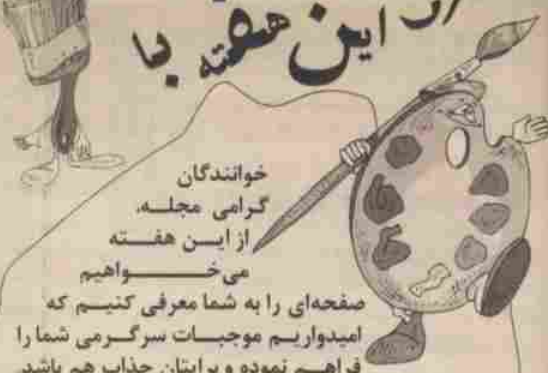 از این هفته با
خوانندگان
گرامی مجله،
از ایـــن هفـــته
می‌خـــــواهیم
صفحه‌ای را به شما معرفی کنیـــم که
امیدواریـم موجبـــات سرگـــرمی شما را
فراهـــم نموده و برایتان جذاب هم باشد.